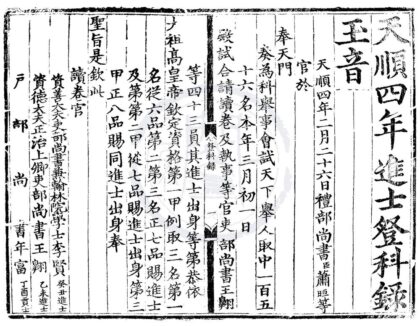 天順四年進士登科錄
玉音
天順四年二月二十六日禮部尚書臣蕭晅等
官於
奉天門
奏為科舉事會試天下舉人取中一百五
十六名本年三月初一日
殿試合請讀卷及執事等官吏部尚書王翺
等四十三員其進士出身等第恭依
太祖高皇帝欽定資格第一甲例取三名第一
名從六品第二第三名正七品賜進士
及第第二甲從七品賜進士出身第三
甲正八品賜同進士出身奉
聖旨是欽此
讀卷官
資善大夫吏部尚書兼翰林院學士李賢 癸丑進士
資德大夫正治上卿吏部尚書王翺 乙未進士
戶部尚書年富 丁酉貢士